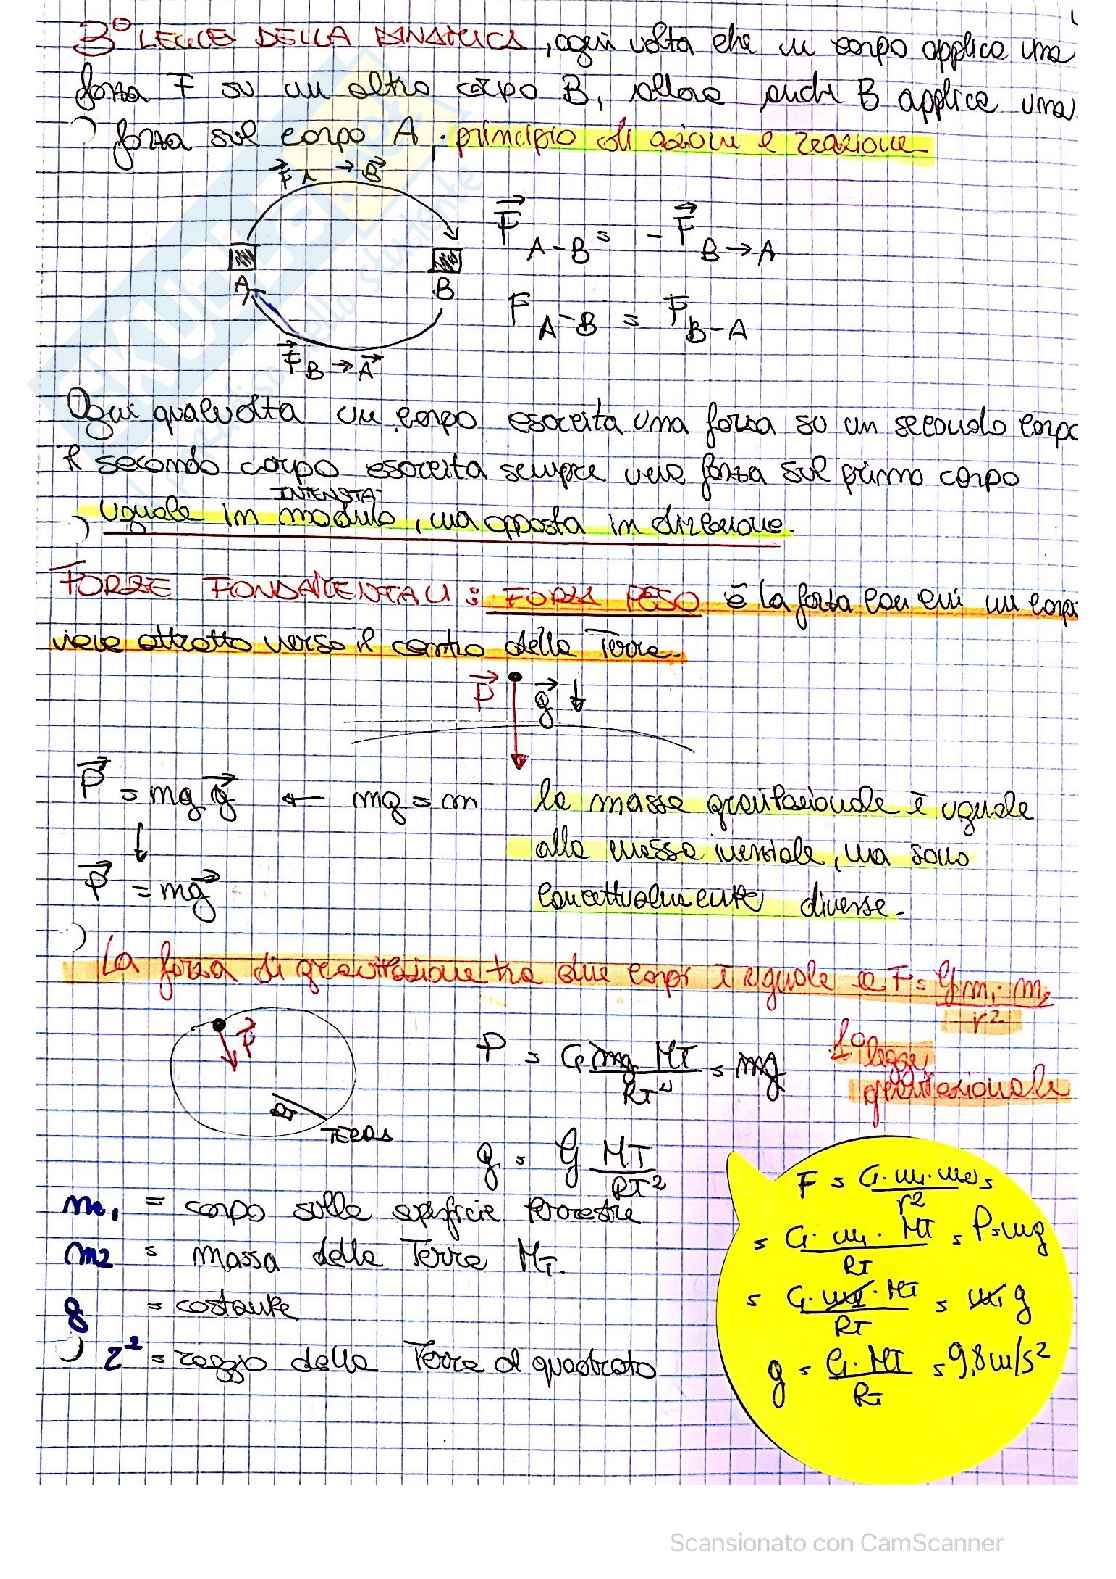 3° LEGGE DELLA DINAMICA, ogni volta che un corpo applica una
forza F su un altro corpo B, allora anche B applica una
forza sul corpo A. principio di azione e reazione
F A → B
F A-B = - F B→A
A B
F A-B = F B-A
F B → A
Ogni qualvolta un corpo esercita una forza su un secondo corpo
il secondo corpo esercita sempre una forza sul primo corpo
INTENSITA'
uguale in modulo, ma opposta in direzione.
FORZE FONDAMENTALI: FORZA PESO è la forza con cui un corpo
viene attratto verso il centro della Terra.
P g
P = mg g ← mg = m la massa gravitazionale è uguale
alla massa inerziale, ma sono
P = mg concettualmente diverse.
La forza di gravitazione tra due corpi è uguale a F = G m1 · m2
r²
P
P = G mg MT = mg
RT²
1° legge
gravitazionale
RT
TERRA
g = G MT
RT²
m1 = corpo sulla superficie terrestre
m2 = massa della Terra MT.
g = costante
r² = raggio della Terra al quadrato
F = G · m1 · m2 =
r²
= G · m1 · MT = P = mg
RT
= G · m1 · MT = m1 g
RT
g = G · MT = 9,8 m/s²
RT
Scansionato con CamScanner